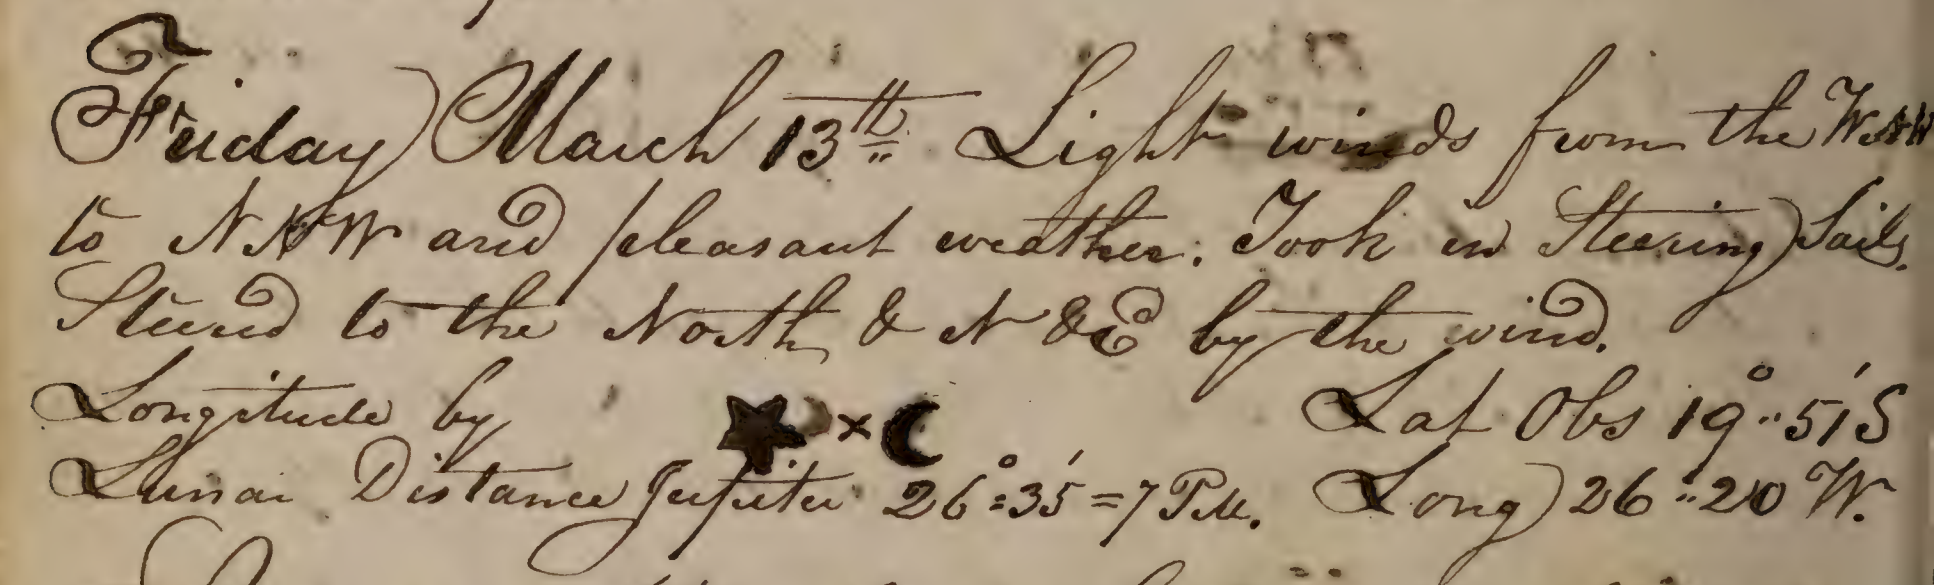 Friday March 13th Light winds from the WNW
to NNW and pleasant weather. Took in Steering Sails.
Steerd to the North & N & E by the wind.
Longitude by ★ × ☾ Lat Obs 19°..51' S
Lunar Distance Jupiter 26°=35' = 7 PM. Long 26..20 W.